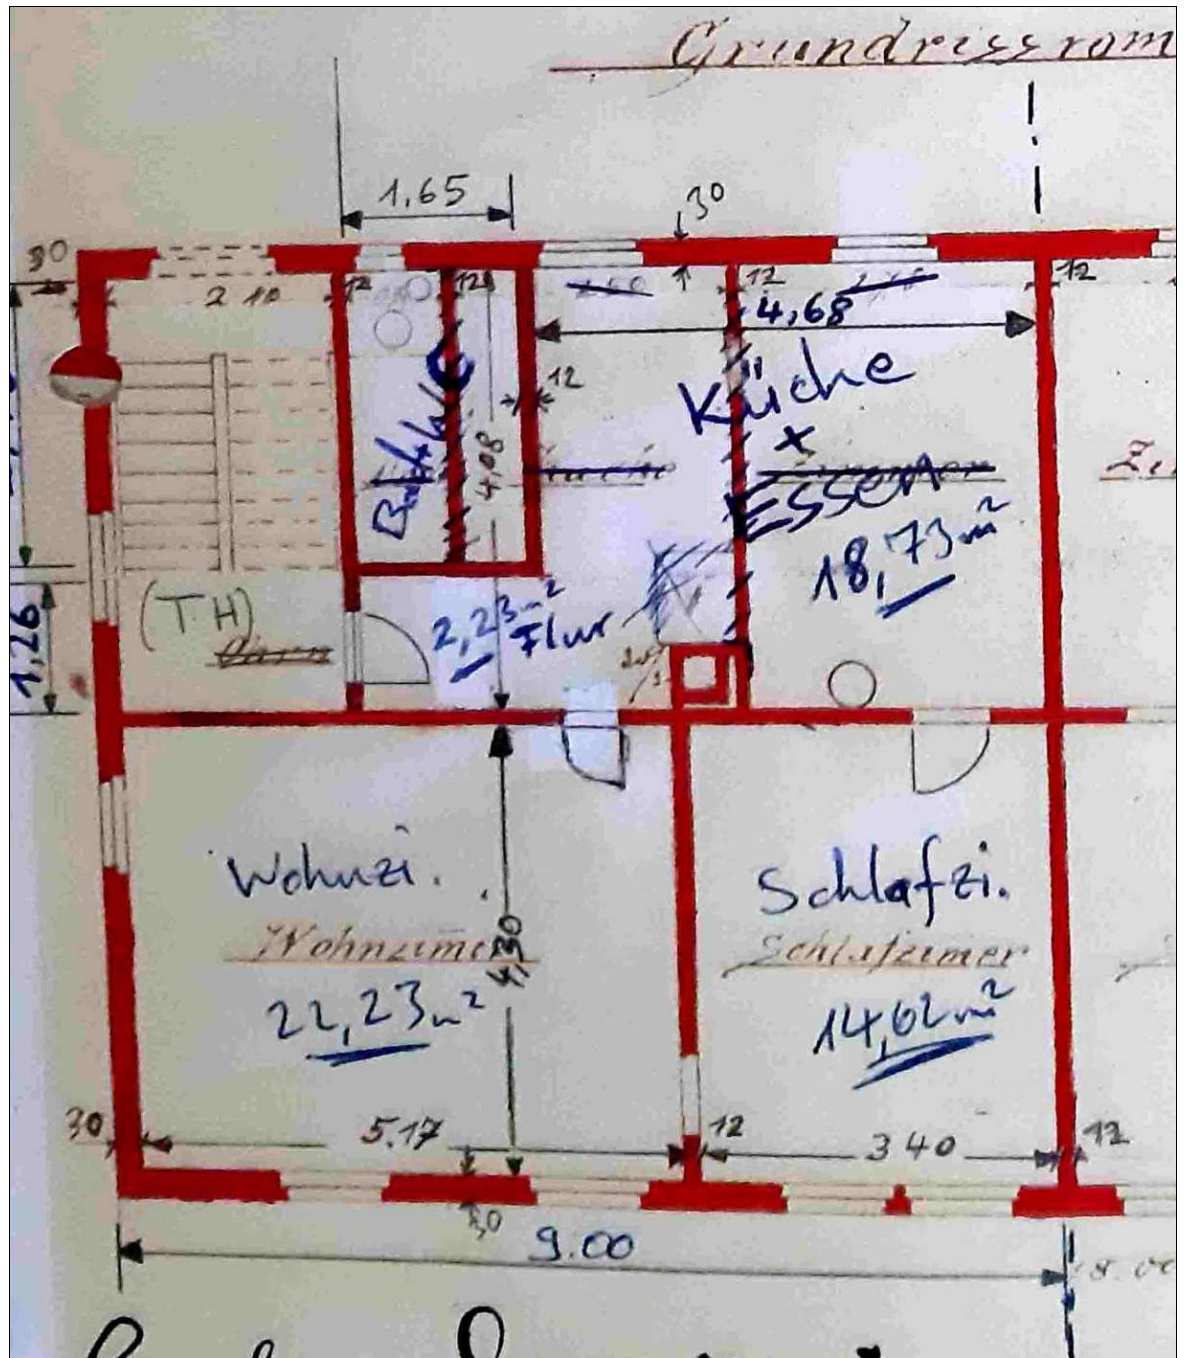 Grundriss vom
1,65
30
30
2 10
12
12
12
12
4,68
12
Küche
+
Essen
18,73 m²
Bad + WC
4,08
(TH)
1,26
2,23 m²
Flur
Wohnzi.
Wohnzimer
22,23 m²
4,30
Schlafzi.
Schlafzimer
14,62 m²
30
5.17
12
3 40
12
30
9.00